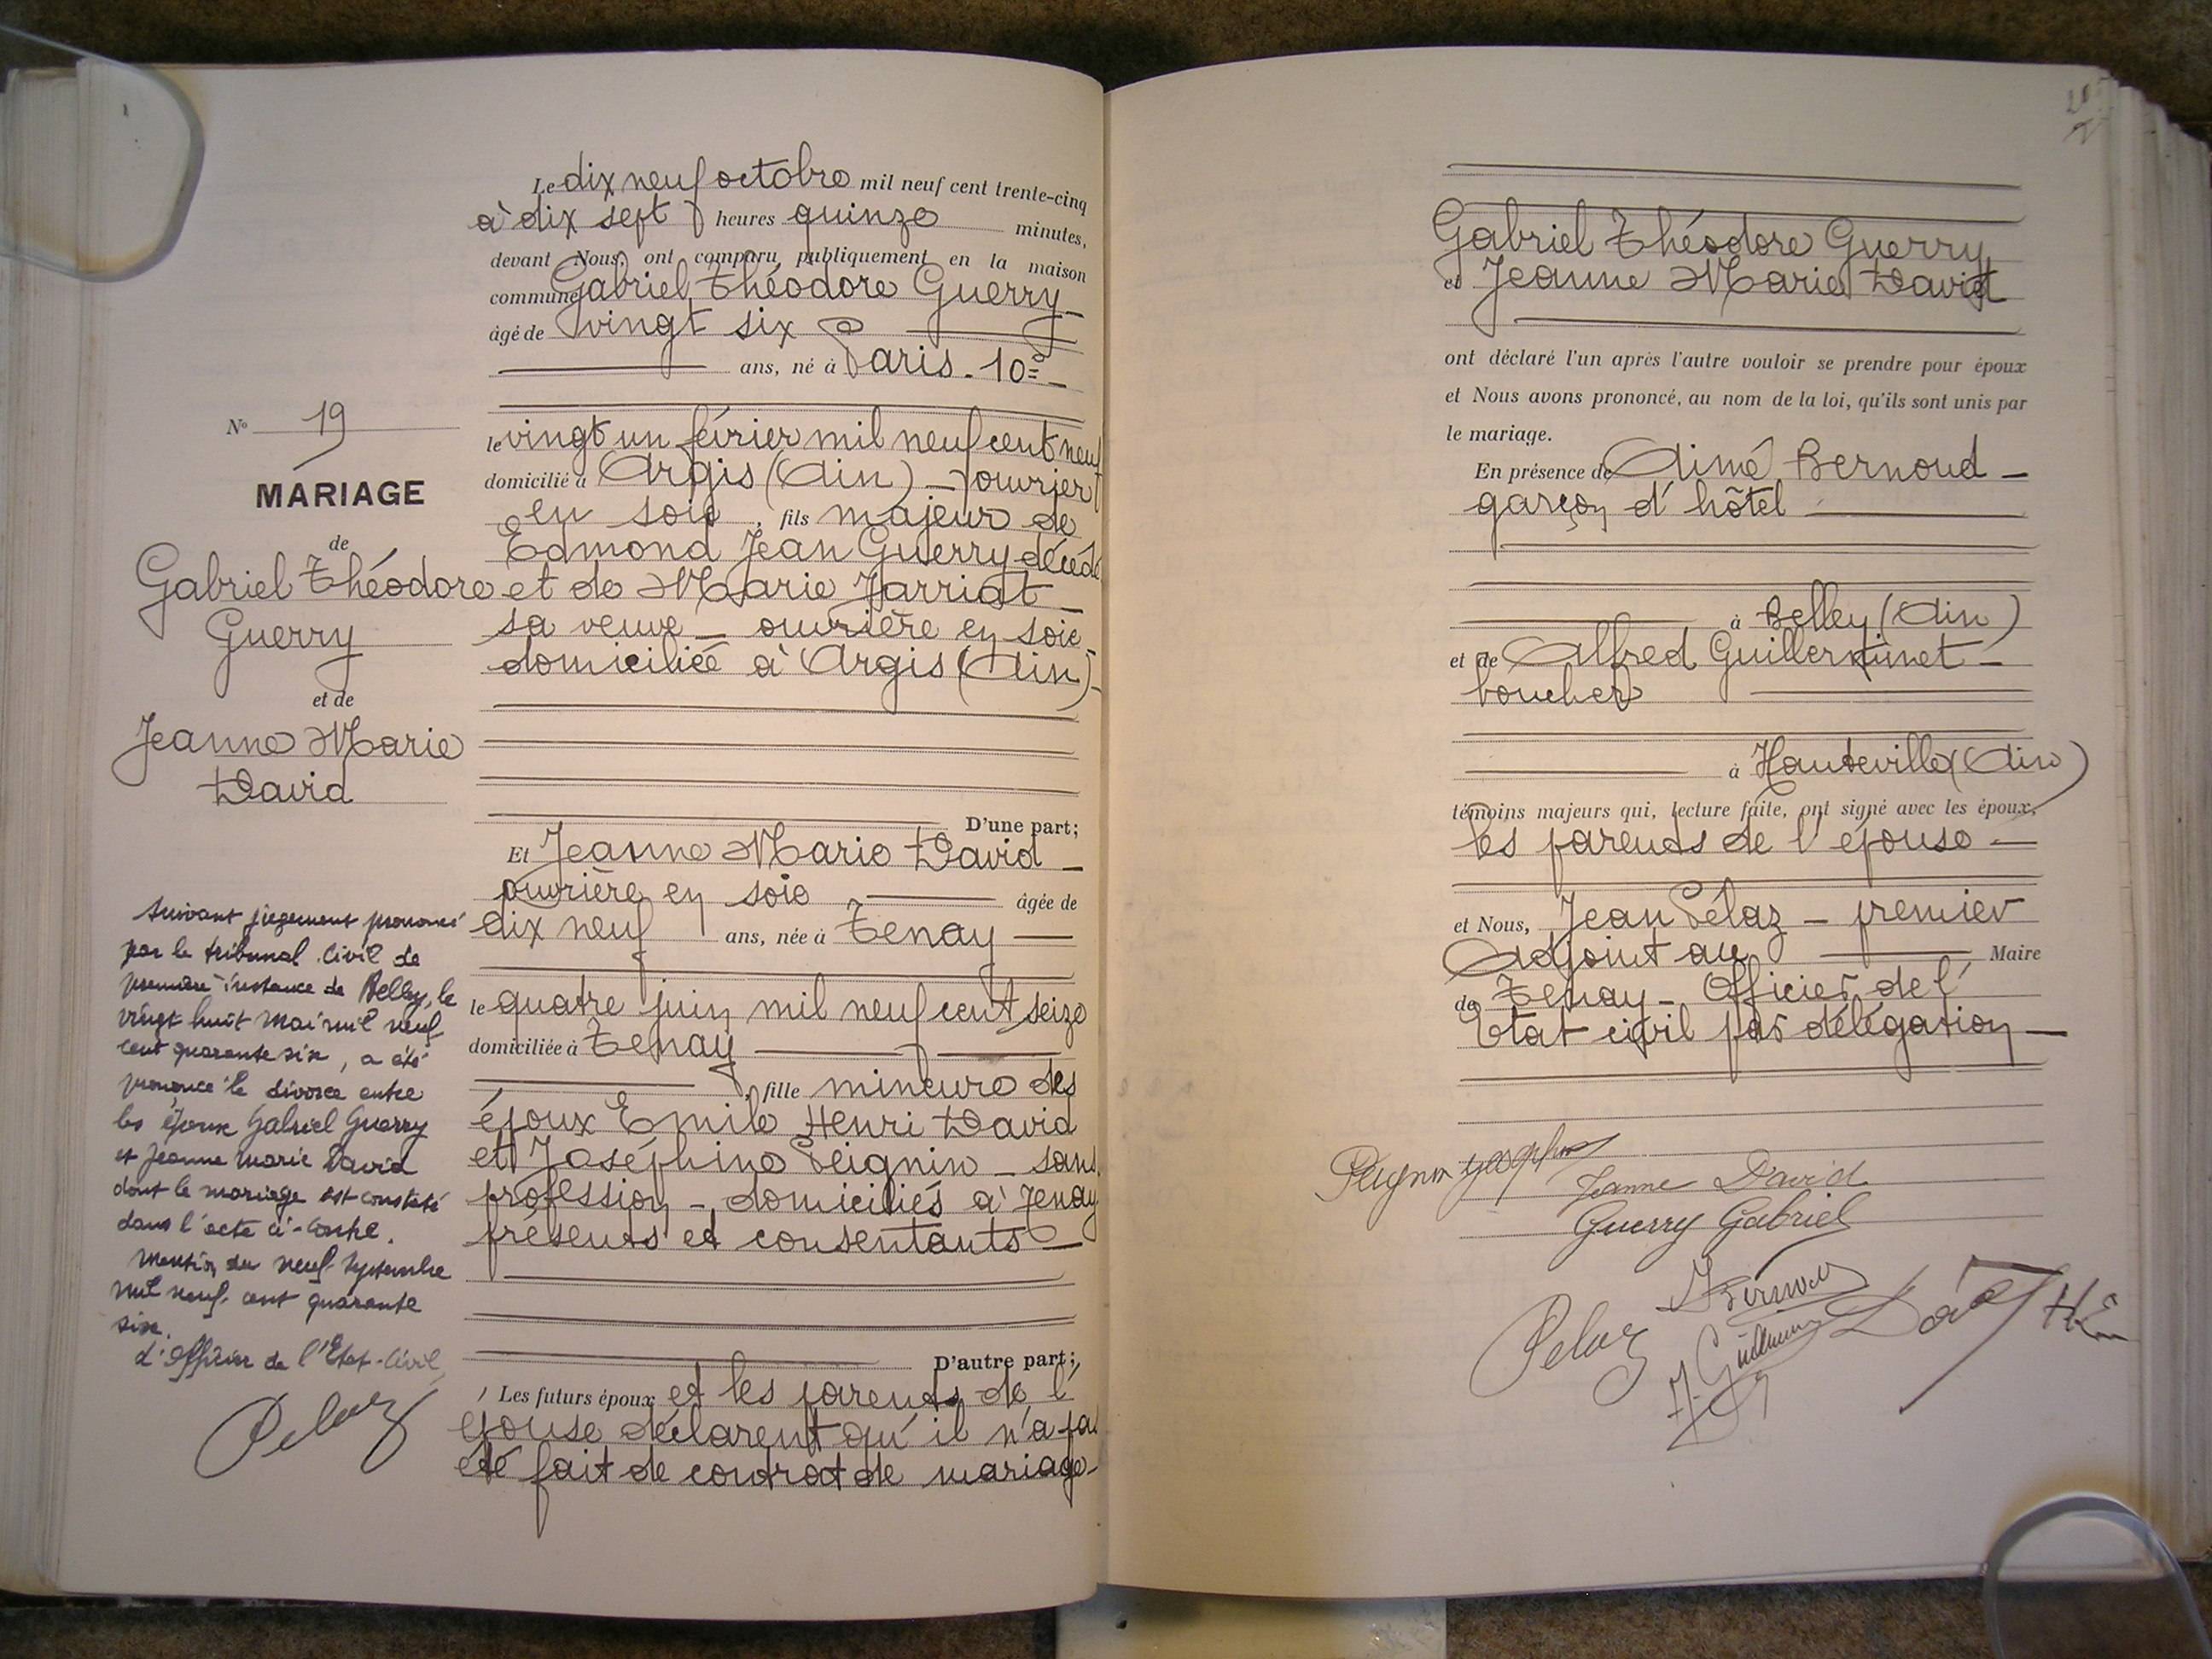 N° 19
MARIAGE
de
Gabriel Théodore
Guerry
et de
Jeanne Marie
David
Suivant jugement prononcé
par le tribunal Civil de
première instance de Belley, le
vingt huit Mai mil neuf
cent quarante six, a été
prononcé le divorce entre
les époux Gabriel Guerry
et Jeanne Marie David
dont le mariage est constaté
dans l'acte ci-contre.
Mention du neuf Septembre
mil neuf cent quarante
six.
L'Officier de l'Etat-Civil,
Pelaz
Le dix neuf octobre mil neuf cent trente-cinq
à dix sept heures quinze minutes,
devant Nous, ont comparu publiquement en la maison
commune Gabriel Théodore Guerry
âgé de vingt six
ans, né à Paris - 10e
le vingt un février mil neuf cent neuf
domicilié à Argis (Ain) - ouvrier
en soie, fils majeur de
Edmond Jean Guerry décédé
et de Marie Jarriat
sa veuve - ouvrière en soie
domiciliée à Argis (Ain)
D'une part;
Et Jeanne Marie David
ouvrière en soie âgée de
dix neuf ans, née à Tenay
le quatre juin mil neuf cent seize
domiciliée à Tenay
, fille mineure des
époux Emile Henri David
et Joséphine Peignin - sans
profession - domiciliés à Tenay
présents et consentants
D'autre part;
Les futurs époux et les parents de l'
épouse déclarent qu'il n'a pas
été fait de contrat de mariage
Gabriel Théodore Guerry
et Jeanne Marie David
ont déclaré l'un après l'autre vouloir se prendre pour époux
et Nous avons prononcé, au nom de la loi, qu'ils sont unis par
le mariage.
En présence de Aimé Bernoud -
garçon d'hôtel
à Belley (Ain)
et de Alfred Guillerminet -
boucher
à Hauteville (Ain)
témoins majeurs qui, lecture faite, ont signé avec les époux,
les parents de l'épouse -
et Nous, Jean Pélaz - premier
Adjoint au Maire
de Tenay - Officier de l'
Etat civil par délégation -
Peignin
Jeanne David
Guerry Gabriel
Bernoud
Pelaz
David HE